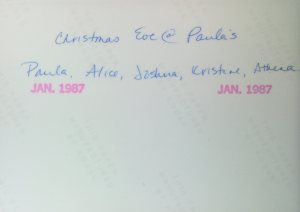 Christmas Eve @ Paula's
Paula, Alice, Joshua, Kristine, Athena
JAN. 1987 JAN. 1987